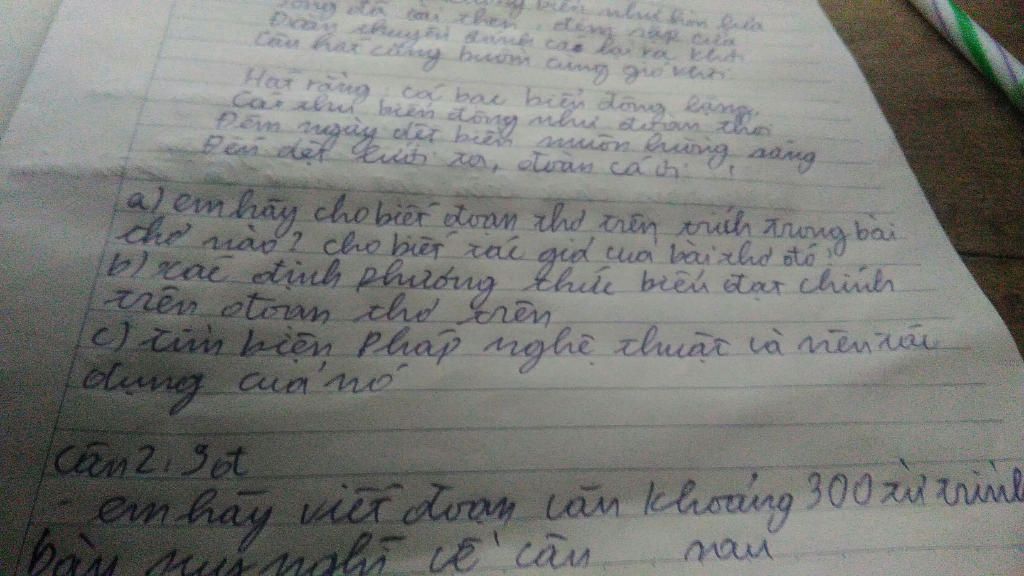 xuống biển như hòn lửa
Sóng đã cài then, đêm sập cửa
Đoàn thuyền đánh cá lại ra khơi
Câu hát căng buồm cùng gió khơi
Hát rằng: cá bạc biển đông lặng,
Cá thu biển đông như đoàn thoi
Đêm ngày dệt biển muôn luồng sáng
Đến dệt lưới ta, đoàn cá ơi!
a) em hãy cho biết đoạn thơ trên trích trong bài
thơ nào? cho biết tác giả của bài thơ đó?
b) xác định phương thức biểu đạt chính
trên đoạn thơ trên
c) tìm biện pháp nghệ thuật và nêu tác
dụng của nó
Câu 2: 3đ
- em hãy viết đoạn văn khoảng 300 từ trình
bày suy nghĩ về câu sau